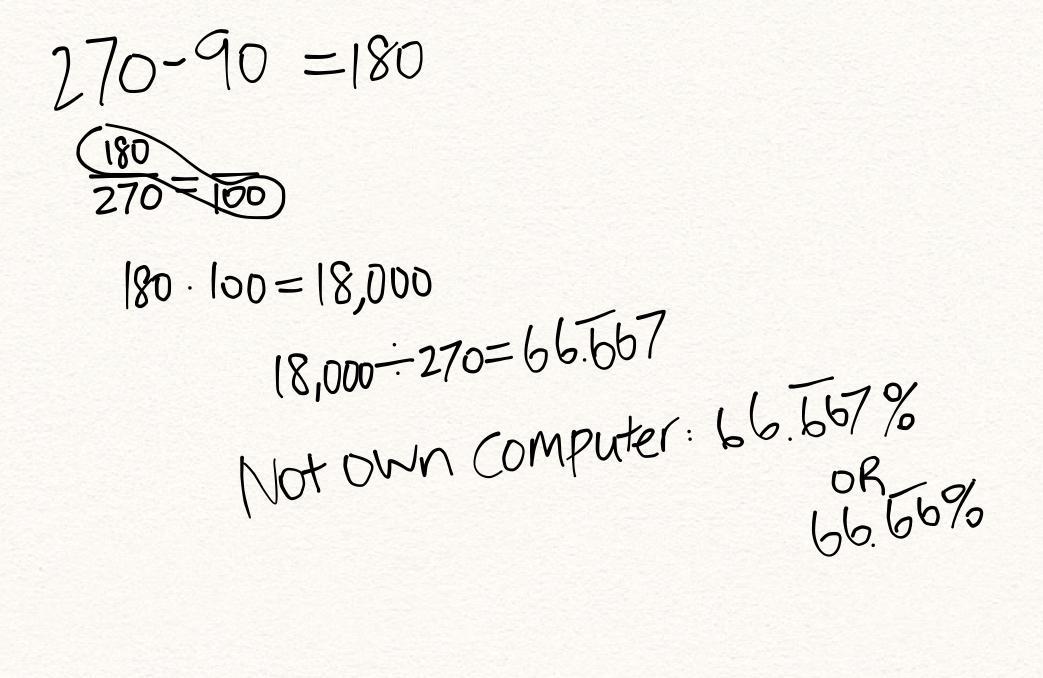 270-90 =180
180
270 = 100
180 · 100 = 18,000
18,000 ÷ 270 = 66.6̅6̅7
Not own computer: 66.6̅6̅7%
OR
66.6̅6%